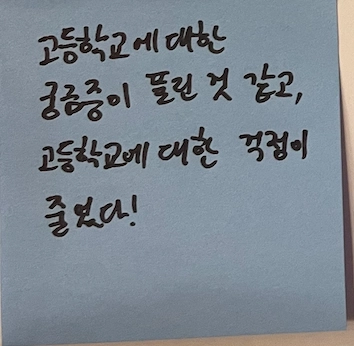 고등학교에 대한
궁금중이 풀린 것 같고,
고등학교에 대한 걱정이
줄었다!